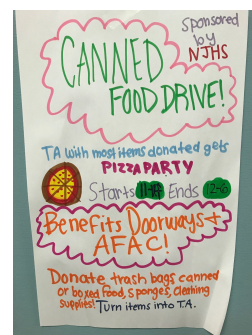 Sponsored
by
NJHS
CANNED
FOOD DRIVE!
TA with most items donated gets
PIZZA PARTY
Starts Ends 12-6
Benefits Doorways +
AFAC!
Donate trash bags canned
or boxed food, sponges, cleaning
supplies! Turn items into T.A.